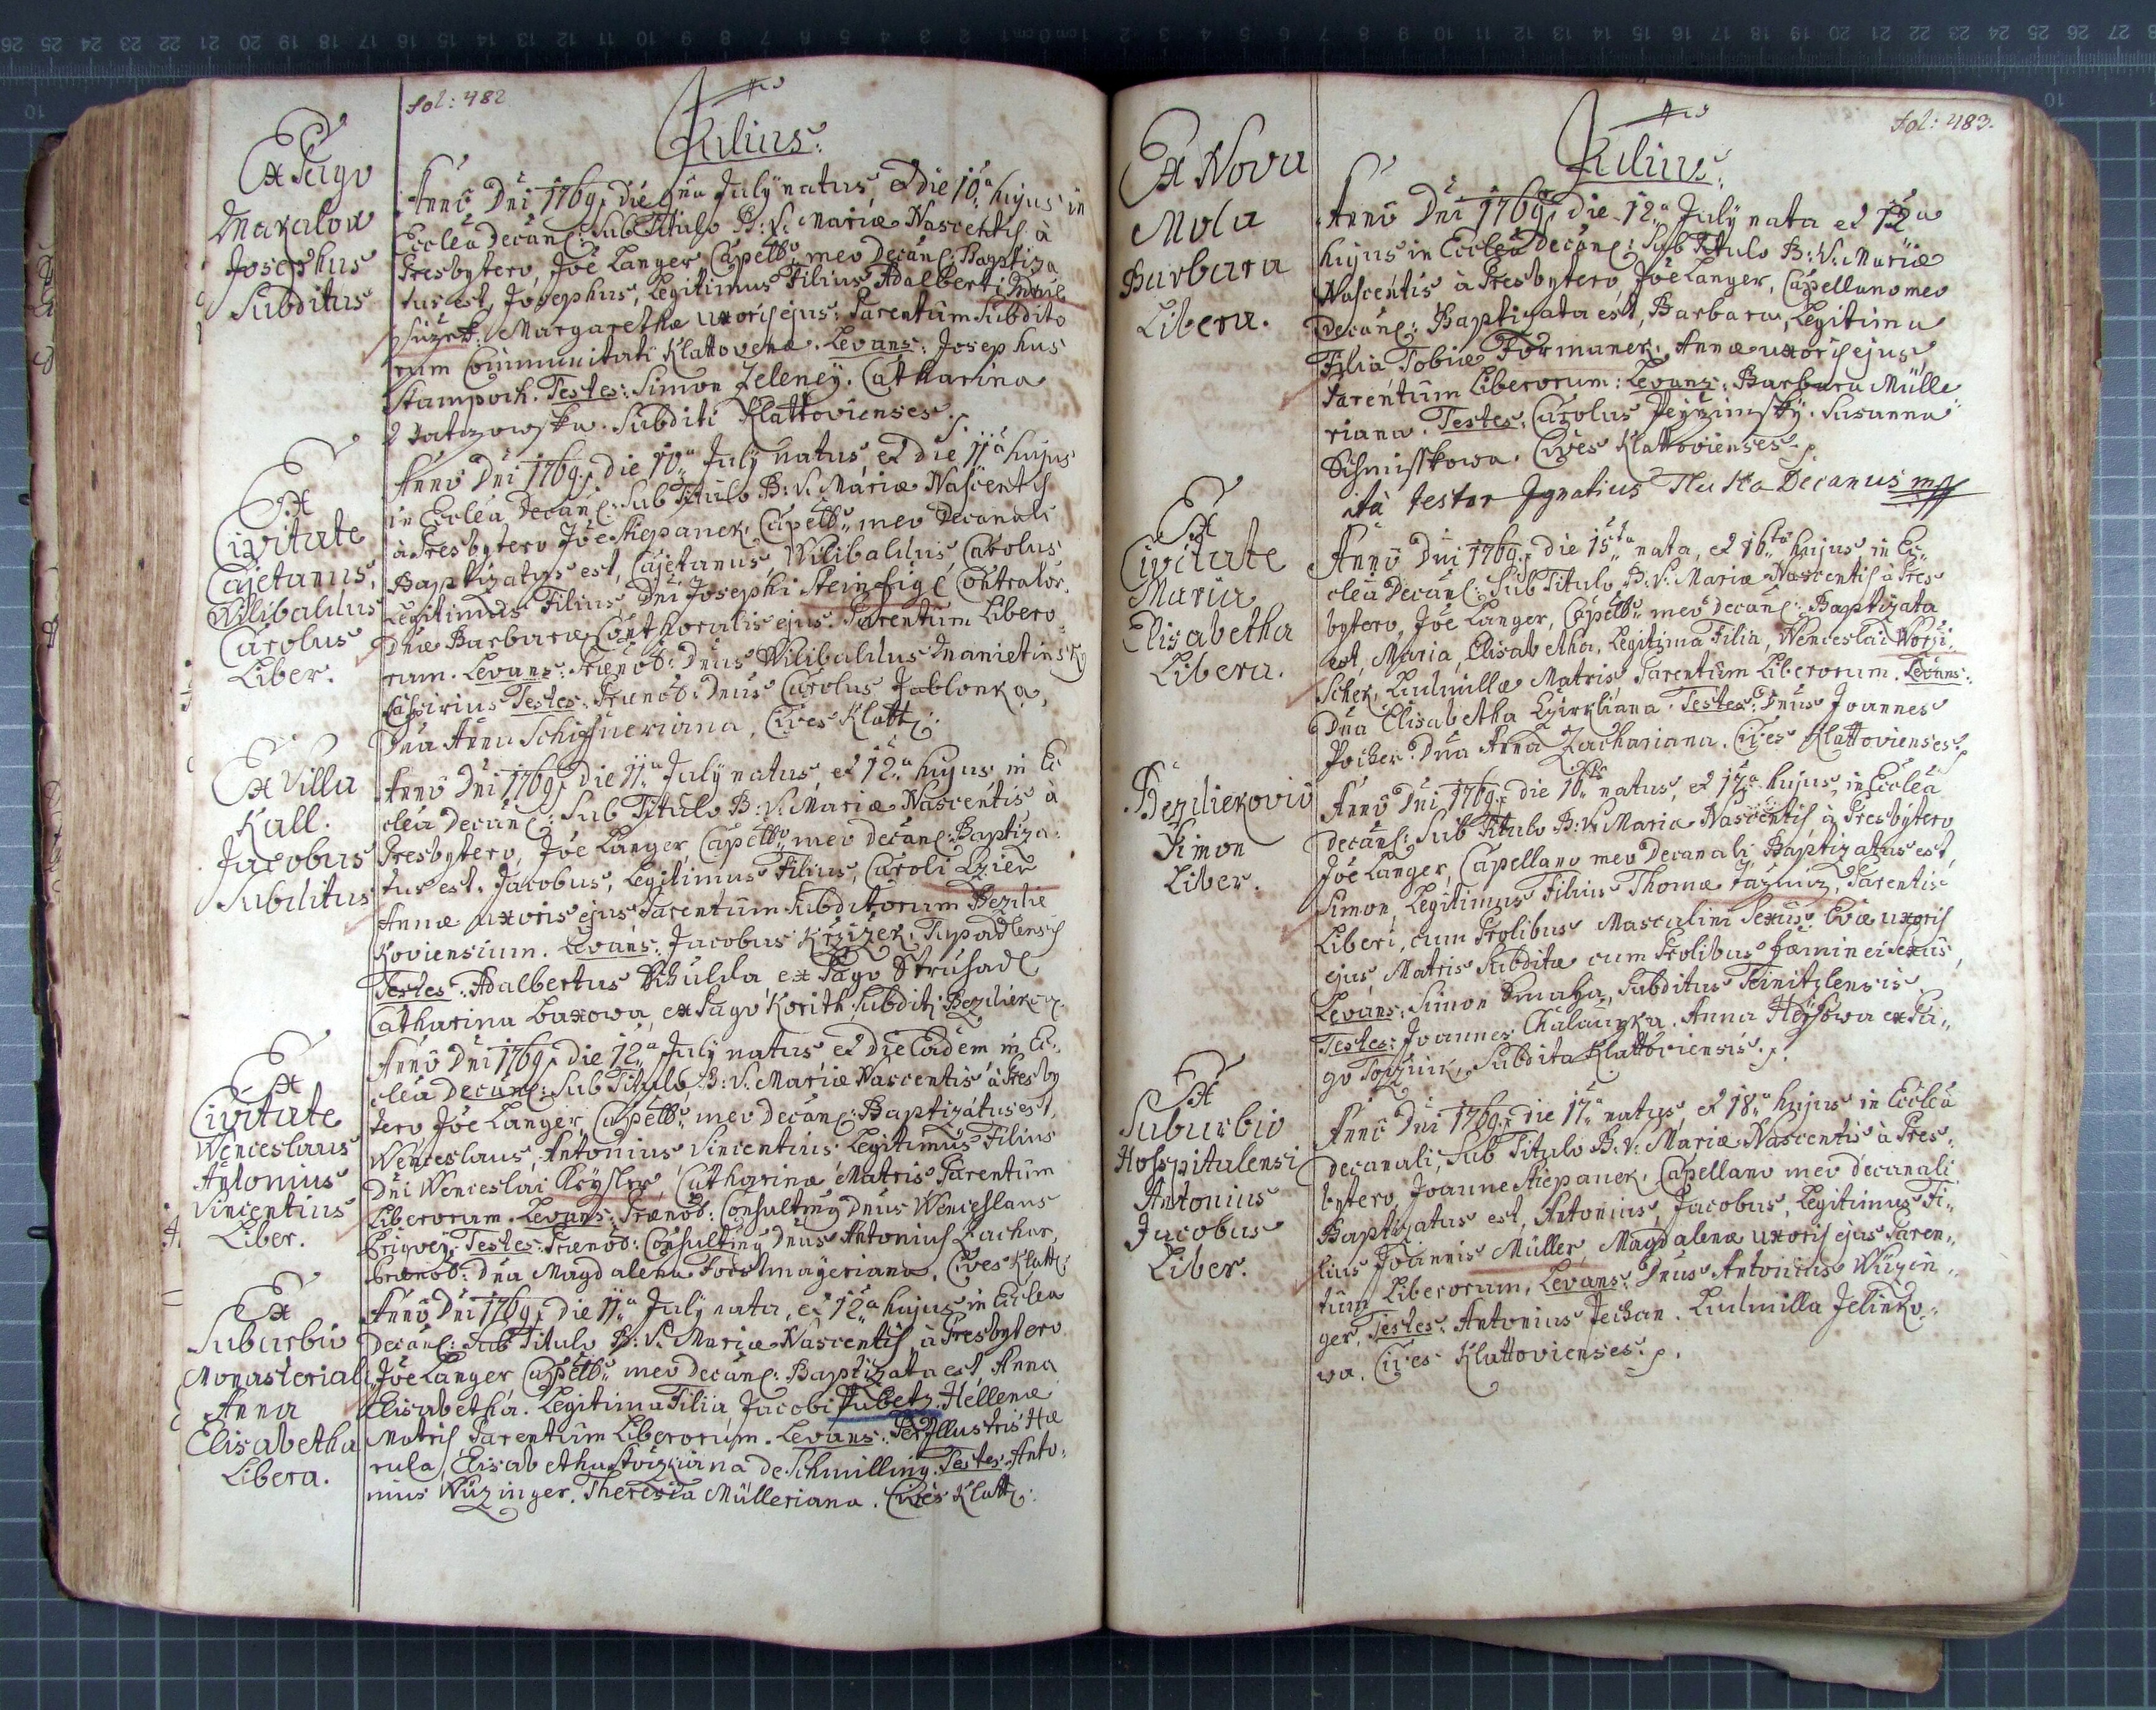 fol: 482
Julius.
Ex Pago
Makalow
Josephus
Subditus
Anno Dni 1769. die 9na July natus, et die 10a hujus in
Ecclea Decanl: Sub Titulo B: V. Mariæ Nascentis à
Presbytero, Joe Langer Capellno meo Decanl: Baptiza
tus est, Josephus, Legitimus Filius Adalberti
Margarethæ uxoris ejus: Parentum Subdito
rum Communitati Klattovenæ. Levans: Josephus
Stampoch. Testes: Simon Zeleney. Catharina
Subditi Klattovienses.
Ex
Civitate
Cajetanus,
Wilibaldus
Carolus
Liber.
Anno Dni 1769. die 10a July natus, et die 11a hujus
in Ecclea Decanl: Sub Titulo B: V. Mariæ Nascentis
à Presbytero Joe Stiepanek, Capellno meo Decanali
Baptizatus est, Cajetanus, Wilibaldus, Carolus
Legitimus Filius, Dni Josephi Steinfigl Contralor.
Dnæ Barbaræ Conthoralis ejus. Parentum Libero
rum. Levans: Prænob: Dnus Wilibaldus Znanietinsky
Testes: Prænob: Dnus Carolus Jablonka,
Dna Anna Schiffneriana, Cives Klatt:
Ex Villa
Kall.
Jacobus
Subditus
Anno Dni 1769. die 11a July natus, et 12a hujus in Ec
clea Decanl: Sub Titulo B: V. Mariæ Nascentis à
Presbytero, Joe Langer Capellno meo Decanl: Baptiza
tus est. Jacobus, Legitimus Filius, Caroli
Annæ uxoris ejus Parentum Subditorum Bezdie
Koviensium. Levans: Jacobus Krzizek, Tupadlensis
Testes: Adalbertus Schulda ex Pago Struhadl
Catharina Baxowa, ex Pago Korith Subditi
Ex
Civitate
Wenceslaus
Antonius
Vincentius
Liber.
Anno Dni 1769. die 12a July natus et die Eadem in Ec
clea Decanl: Sub Titulo B: V. Mariæ Nascentis à Presby
tero Joe Langer Capellno meo Decanl: Baptizatus est,
Wenceslaus, Antonius Vincentius Legitimus Filius
Dni Wenceslai Keysler, Catharinæ Matris Parentum
Liberorum. Levans: Prænob: Consultmg Dnus Wenceslaus
Testes: Prænob: Consultmg Dnus Antonius Zachar,
Prænob: Dna Magdalena Forstmayeriana. Cives Klatt:
Ex
Suburbio
Monasteriali
Anna
Elisabetha
Libera.
Anno Dni 1769. die 11a July nata, et 12a hujus in Ecclea
Decanl: Sub Titulo B: V. Mariæ Nascentis à Presbytero
Joe Langer Capellno meo Decanl: Baptizata est, Anna
Elisabetha. Legitima Filia Jacobi Hellenæ
Matris Parentum Liberorum. Levans: Perillustris Hæ
rula, Elisabetha de Schmilling. Testes: Anto
nius Würzinger. Theresia Mülleriana. Cives Klatt:
fol: 483.
Julius.
Ex Nova
Mola
Barbara
Libera.
Anno Dni 1769. die 12a July nata et 12a
hujus in Ecclea Decanl: Sub Titulo B: V. Mariæ
Nascentis à Presbytero Joe Langer, Capellano meo
Decanl: Baptizata est, Barbara, Legitima
Filia Tobiæ Formanek, Annæ uxoris ejus,
Parentum Liberorum: Levans: Barbara Mülle
riana. Testes, Carolus Susanna
Cives Klattovienses.
ita testor Ignatius Decanus mp
Ex
Civitate
Maria
Elisabetha
Libera.
Anno Dni 1769. die 15ta nata, et 16ta hujus in Ec
clea Decanl: Sub Titulo B: V. Mariæ Nascentis à Pres
bytero, Joe Langer, Capellno meo Decanl: Baptizata
est, Maria, Elisabetha, Legitima Filia, Wenceslai Worzi
schek, Ludmillæ Matris Parentum Liberorum. Levans:
Dna Elisabetha Testes: Dnus Joannes
Pocher. Dna Anna Zachariana. Cives Klattovienses.
Simon
Liber.
Anno Dni 1769. die 16ta natus, et 17a hujus, in Ecclea
Decanl: Sub Titulo B: V. Mariæ Nascentis à Presbytero
Joe Langer, Capellano meo Decanali Baptizatus est,
Simon, Legitimus Filius Thomæ Parentis
Liberi, cum Prolibus Masculini Sexus. Evæ uxoris
ejus, Matris Subditæ cum Prolibus fæminei sexus,
Levans: Simon Smaha, Subditus Teinitzlensis.
Testes: Joannes Anna ex Pa
go Subdita Klattoviensis.
Ex
Suburbio
Hospitalensi
Antonius
Jacobus
Liber.
Anno Dni 1769. die 17a natus, et 18a hujus in Ecclea
Decanali, Sub Titulo B: V. Mariæ Nascentis à Pres
bytero, Joanne Stiepanek, Capellano meo decanali
Baptizatus est, Antonius, Jacobus, Legitimus Fi
lius Joannis Müller, Magdalenæ uxoris ejus Paren
tum Liberorum, Levans: Dnus Antonius Würzin
ger, Testes: Antonius Jechan. Ludmilla Jelinko
wa. Cives Klattovienses.